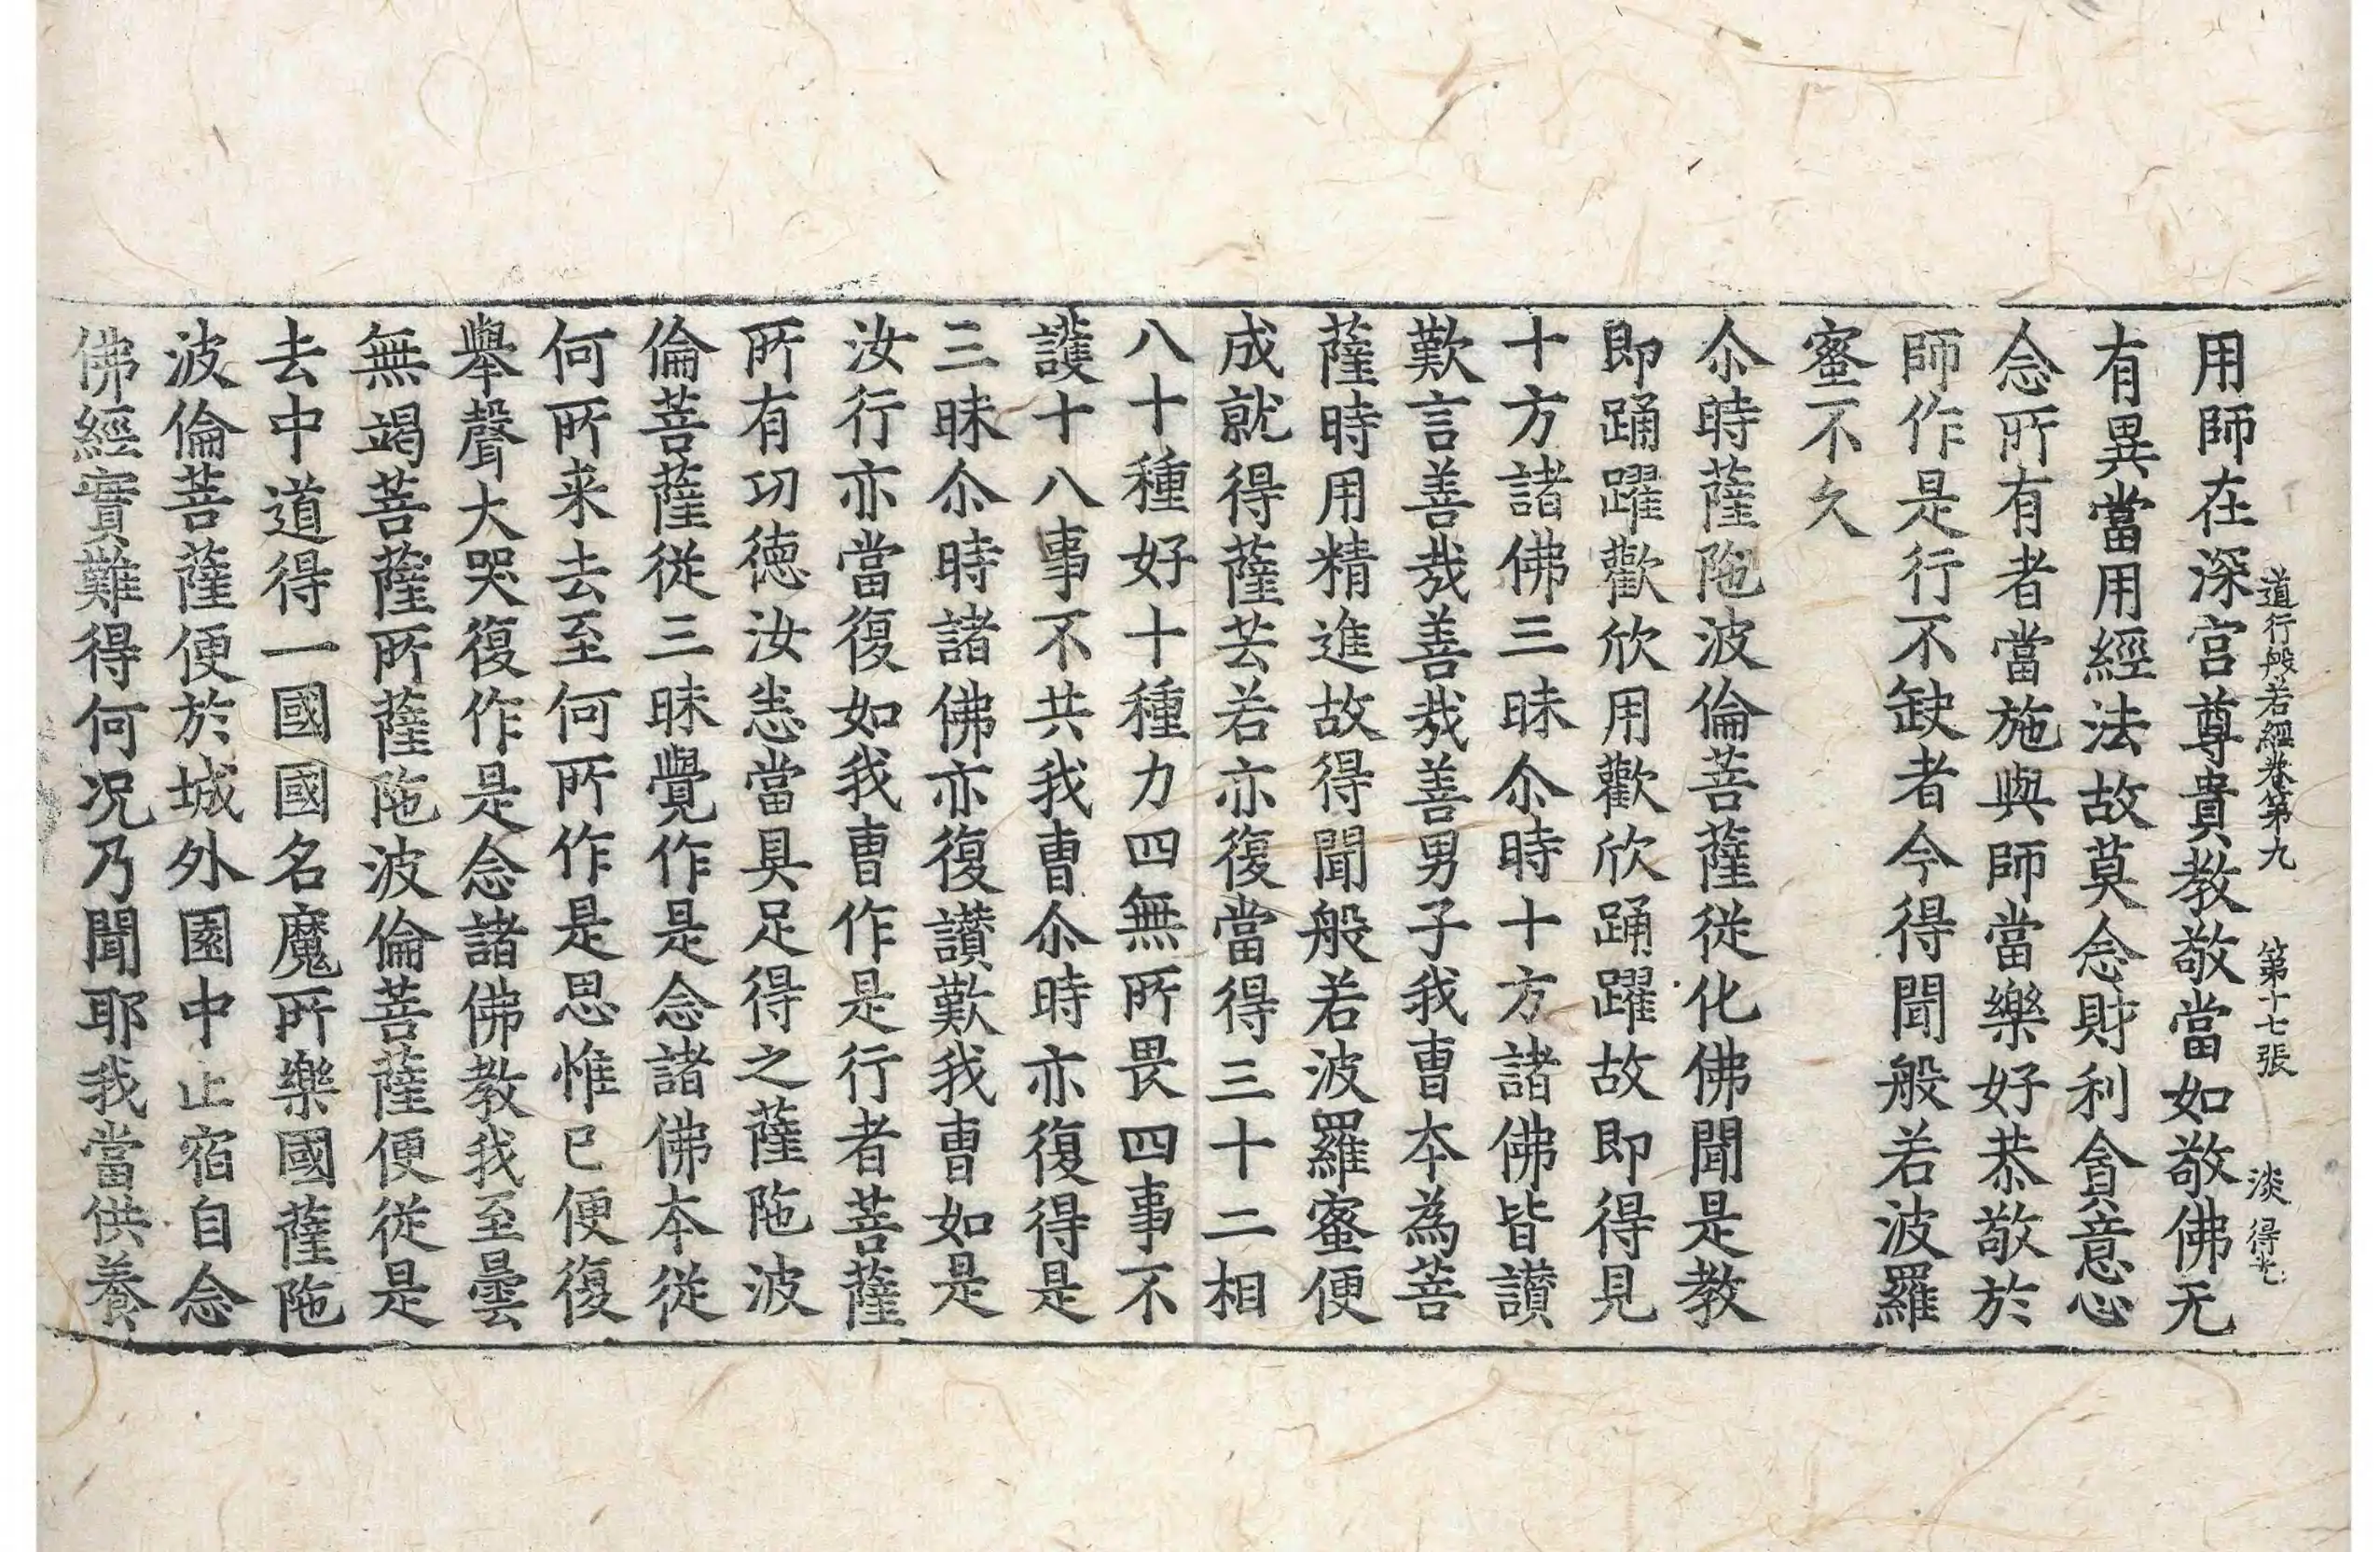 道行般若經卷第九 第十七張 淡 得光
用師在深宫尊貴教敬當如敬佛无
有異當用經法故莫念財利貪意念
念所有者當施與師當樂好恭敬於
師作是行不缺者今得聞般若波羅
蜜不久
尒時薩陁波倫菩薩從化佛聞是教
即踊躍歡欣用歡欣踊躍故即得見
十方諸佛三昧尒時十方諸佛皆讃
歎言善㦲善㦲善男子我曹夲為菩
薩時用精進故得聞般若波羅蜜便
成就得薩芸若亦復當得三十二相
八十種好十種力四無所畏四事不
護十八事不共我曹尒時亦復得是
三昧尒時諸佛亦復讃歎我曹如是
汝行亦當復如我曹作是行者菩薩
所有㓛徳汝悉當具足得之薩陁波
倫菩薩從三昧覺作是念諸佛夲從
何所来去至何所作是思惟已便復
舉聲大哭復作是念諸佛教我至曇
無竭菩薩所薩陁波倫菩薩便從是
去中道得一國國名魔所樂國薩陁
波倫菩薩便於城外園中止宿自念
佛經實難得何況乃聞耶我當供養